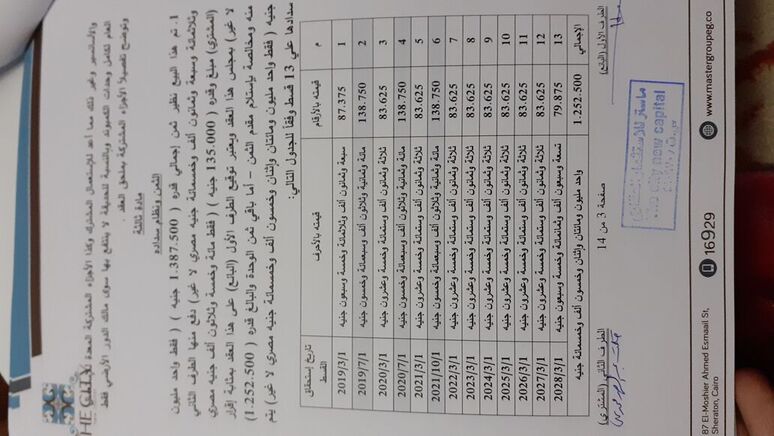 THE CITY
العام تكامل وحدات الكمبوند وبالنسبة للحديقة لا ينتفع بها سوى مالك الدور الأرضي فقط
والأسانسير وغير ذلك مما اعد للإستعمال المشترك وكذا الأجزاء المشتركة المعدة
وتوضح تفصيلاً الأجزاء المشتركة بملحق العقد .
مادة ثالثة
الثمن ونظام سداده
1. تم هذا البيع نظير ثمن إجمالي قدره ( 1.387.500 جنيه ) ( فقط واحد مليون
وثلاثمائة وسبعة وثمانون ألف وخمسمائة جنيه مصري لا غير) دفع منها الطرف الثاني
(المشتري) مبلغ وقدره (135.000 جنيه ) ( فقط مائة وخمسة وثلاثون ألف جنيه مصري
لا غير) بمجلس هذا العقد ويعتبر توقيع الطرف الأول (البائع) على هذا العقد بمثابة إقرار
منه ومخالصة بإستلام مقدم الثمن – أما باقي ثمن الوحدة والبالغ قدره ( 1.252.500
جنيه ( فقط واحد مليون ومائتان وإثنان وخمسون ألف وخمسمائة جنيه مصري لا غير) يتم
سدادها علي 13 قسط وفقاً للجدول التالي:
م قيمته بالأرقام قيمته بالأحرف تاريخ إستحقاق القسط
1 87.375 سبعة وثمانون ألف وثلاثمائة وخمسة وسبعون جنيه 2019/3/1
2 138.750 مائة وثمانية وثلاثون ألف وسبعمائة وخمسون جنيه 2019/7/1
3 83.625 ثلاثة وثمانون ألف وستمائة وخمسة وعشرون جنيه 2020/3/1
4 138.750 مائة وثمانية وثلاثون ألف وسبعمائة وخمسون جنيه 2020/7/1
5 83.625 ثلاثة وثمانون ألف وستمائة وخمسة وعشرون جنيه 2021/3/1
6 138.750 مائة وثمانية وثلاثون ألف وسبعمائة وخمسون جنيه 2021/10/1
7 83.625 ثلاثة وثمانون ألف وستمائة وخمسة وعشرون جنيه 2022/3/1
8 83.625 ثلاثة وثمانون ألف وستمائة وخمسة وعشرون جنيه 2023/3/1
9 83.625 ثلاثة وثمانون ألف وستمائة وخمسة وعشرون جنيه 2024/3/1
10 83.625 ثلاثة وثمانون ألف وستمائة وخمسة وعشرون جنيه 2025/3/1
11 83.625 ثلاثة وثمانون ألف وستمائة وخمسة وعشرون جنيه 2026/3/1
12 83.625 ثلاثة وثمانون ألف وستمائة وخمسة وعشرون جنيه 2027/3/1
13 79.875 تسعة وسبعون ألف وثمانمائة وخمسة وسبعون جنيه 2028/3/1
الإجمالي 1.252.500 واحد مليون ومائتان وإثنان وخمسون ألف وخمسمائة جنيه
الطرف الأول (البائع) صفحة 3 من 14 الطرف الثاني (المشتري)
The city new capital
87 El-Moshier Ahmed Esmaail St,
Sheraton, Cairo
16929
www.mastergroupeg.co